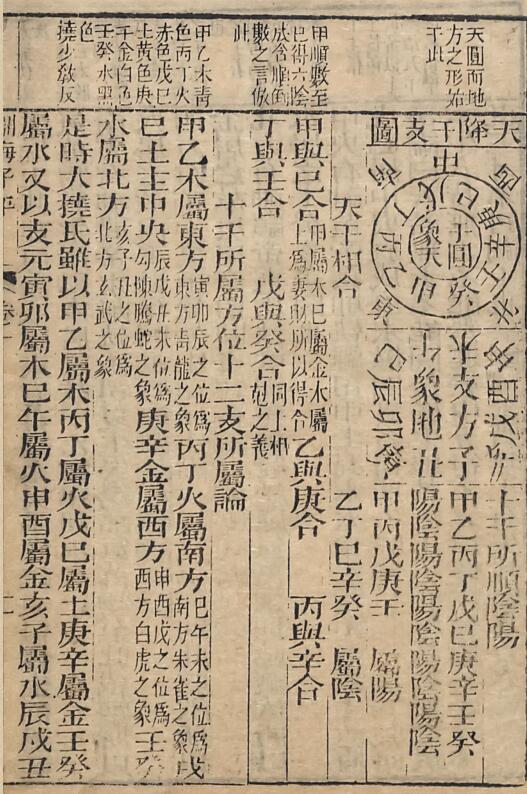 天圓而地
方之形始
于此
甲順數至
巳得六陰
成合順倒
數之言倣
此
甲乙木青
色丙丁火
赤色戊巳
土黃色庚
辛金白色
壬癸水黑
色
撓少敎反
天降干支圖
中
南
甲乙丙丁戊巳庚辛壬癸
干圓
象天
支方
象地
十干所順陰陽
甲乙丙丁戊巳庚辛壬癸
陽陰陽陰陽陰陽陰陽陰
甲丙戊庚壬 屬陽
乙丁巳辛癸 屬陰
天干相合
甲與巳合甲屬木巳屬金木屬上爲妻財所以得合乙與庚合 丙與辛合
丁與壬合 戊與癸合同上相尅之義
十干所屬方位十二支所屬論
甲乙木屬東方寅卯辰之位爲東方青龍之象丙丁火屬南方巳午未之位爲南方朱雀之象戊
巳土主中央辰戌丑未位爲勾陳騰蛇之象庚辛金屬西方申酉戌之位爲西方白虎之象壬癸
水屬北方亥子丑之位爲北方玄武之象
是時大撓氏雖以甲乙屬木丙丁屬火戊巳屬土庚辛屬金壬癸
屬水又以支元寅卯屬木巳午屬火申酉屬金亥子屬水辰戌丑